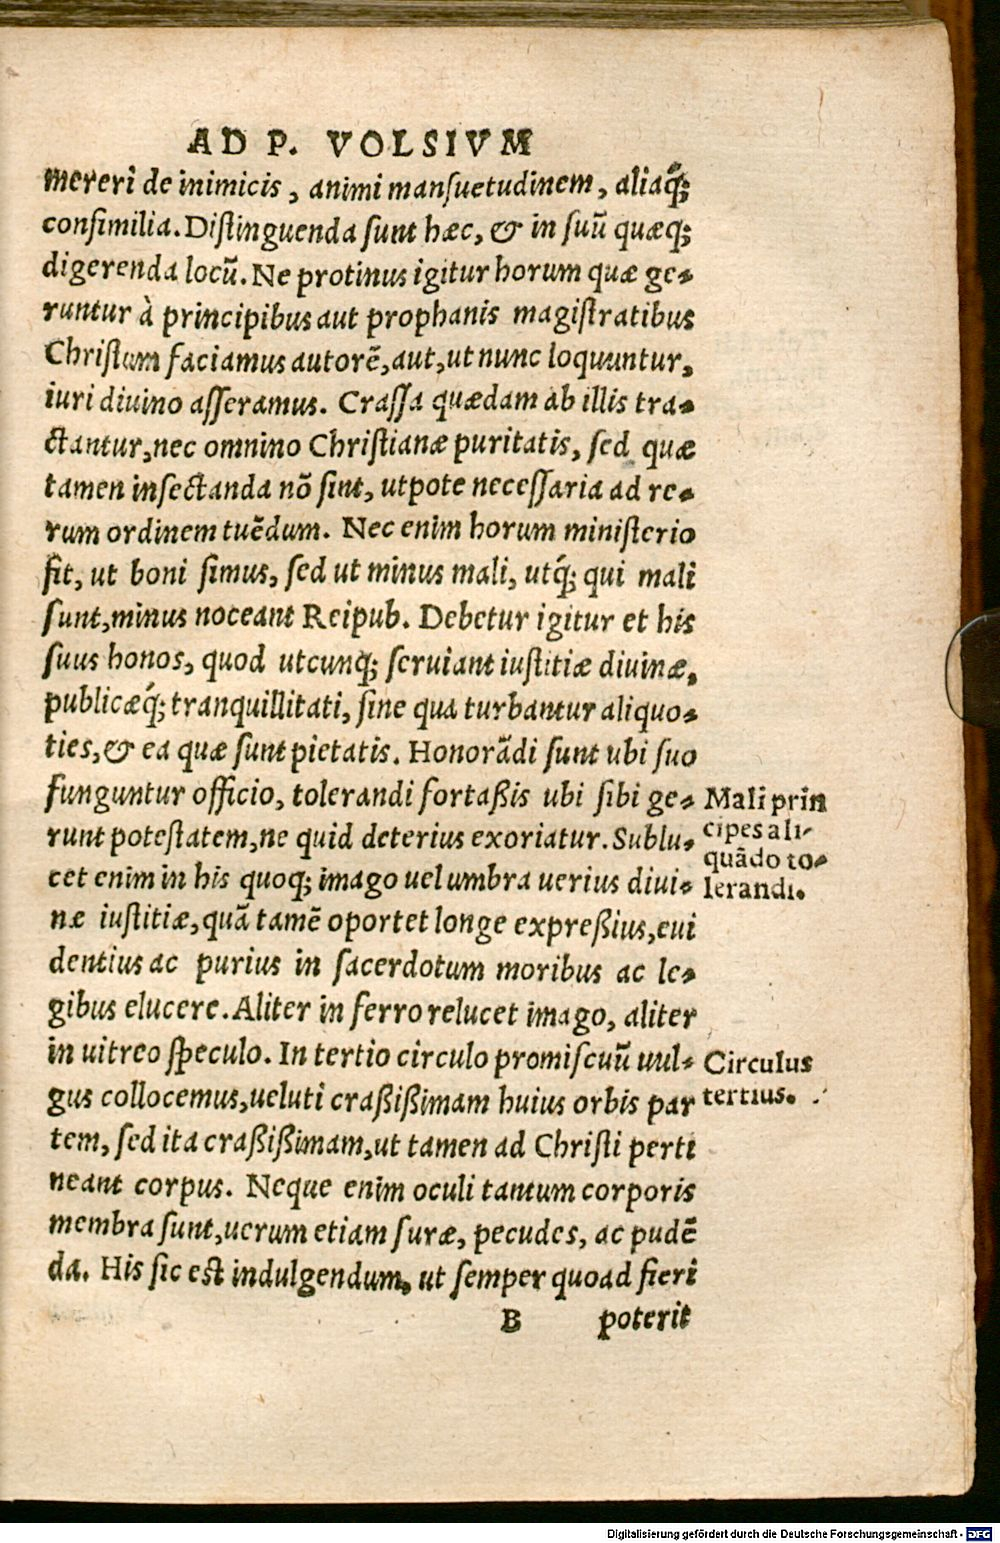 AD P. VOLSIVM
mereri de inimicis, animi mansuetudinem, aliaq́;
consimilia. Distinguenda sunt hæc, & in suũ quæq;
digerenda locũ. Ne protinus igitur horum quæ ge-
runtur à principibus aut prophanis magistratibus
Christum faciamus autorẽ, aut, ut nunc loquuntur,
iuri diuino asseramus. Crassa quædam ab illis tra-
ctantur, nec omnino Christianæ puritatis, sed quæ
tamen insectanda nõ sint, utpote necessaria ad re-
rum ordinem tuẽdum. Nec enim horum ministerio
fit, ut boni simus, sed ut minus mali, utq́; qui mali
sunt, minus noceant Reipub. Debetur igitur et his
suus honos, quod utcunq; seruiant iustitiæ diuinæ,
publicæq́; tranquillitati, sine qua turbantur aliquo-
ties, & ea quæ sunt pietatis. Honorãdi sunt ubi suo
funguntur officio, tolerandi fortaßis ubi sibi ge-
runt potestatem, ne quid deterius exoriatur. Sublu-
cet enim in his quoq; imago uel umbra uerius diui-
næ iustitiæ, quã tamẽ oportet longe expreßius, eui
dentius ac purius in sacerdotum moribus ac le-
gibus elucere. Aliter in ferro relucet imago, aliter
in uitreo speculo. In tertio circulo promiscuũ uul-
gus collocemus, ueluti craßißimam huius orbis par
tem, sed ita craßißimam, ut tamen ad Christi perti
neant corpus. Neque enim oculi tantum corporis
membra sunt, uerum etiam suræ, pecudes, ac pudẽ
da. His sic est indulgendum, ut semper quoad fieri
B poterit
Mali prin
cipes ali-
quãdo to-
lerandi.
Circulus
tertius.
Digitalisierung gefördert durch die Deutsche Forschungsgemeinschaft - DFG